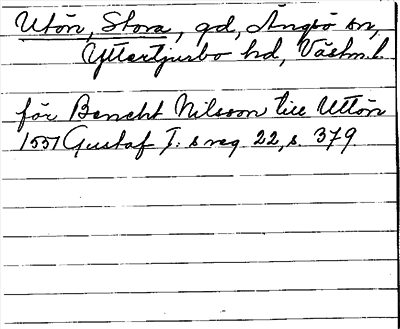 Utön, Stora, gd, Ängsö sn,
Yttertjurbo hd, Västm. l.
för Bencht Nilsson till Uttön
1551 Gustaf I:s reg. 22, s. 379.